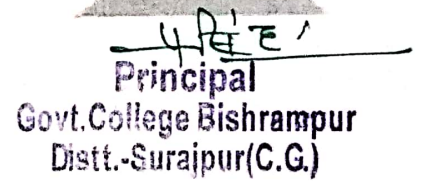 Principal
Govt.College Bishrampur
Distt.-Surajpur(C.G.)